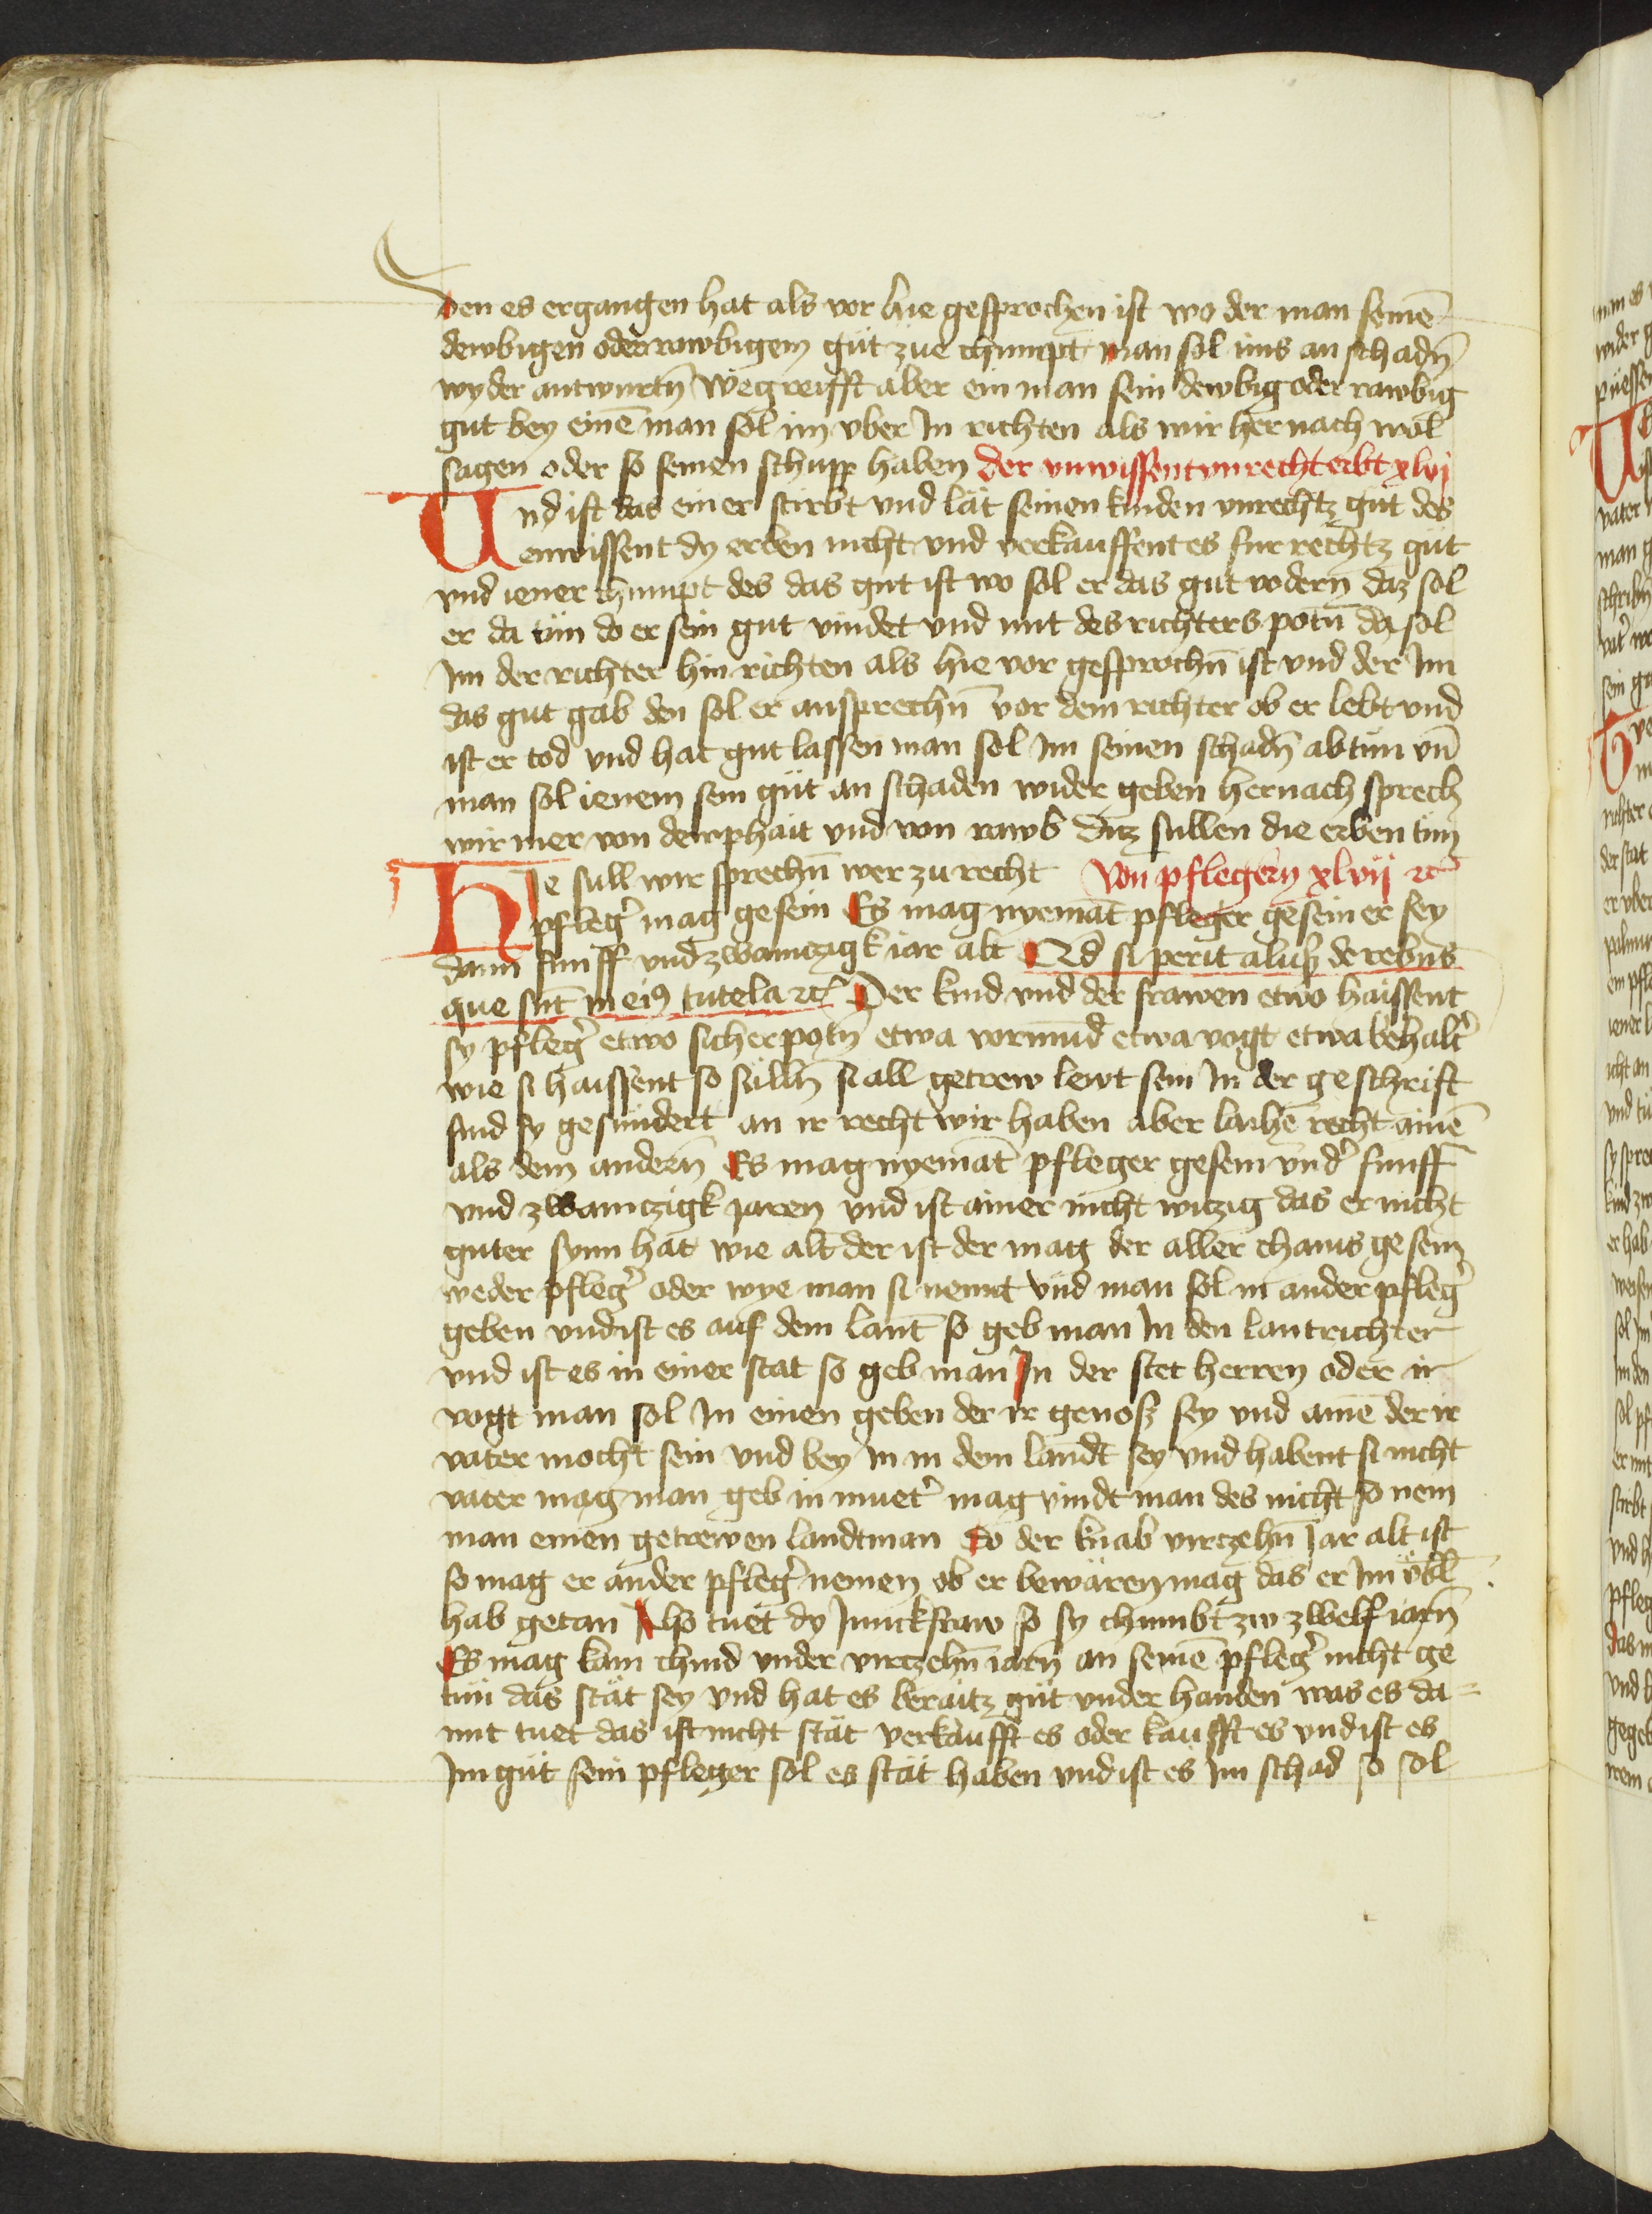 den es ergangen hat als vor hie gesprochen ist wo der man seinē
dewbigen oder rawbigem gůt zue chumpt man sol ims an schadn̄
wyder antwurtn̄ Wegreifft aber ein man sein dewbig oder rawbig
gut bey einē man sol im vber In richten als wir her nach wol
sagen oder so seinen schupp haben der vnwissent vnrecht erbt xlvj
Und ist das einer stirbt vnd lät seinen kinden vnrechtz gut des
enwissent dy erben nicht vnd verkauffent es fur rechtz gut
vnd iener chumpt des das gut ist wo sol er das gut vodern daz sol
er da tün do er sein gut vindet vnd mit des richters potn̄ da sol
Im der richter hin richten als hie vor gesprochn̄ ist vnd der Im
das gut gab den sol er ansprechn̄ vor dem richter ob er lebt vnd
ist er tod vnd hat gut lassen man sol Im seinen schadn̄ ab tün vn̄
man sol ienem sein güt an schaden wider geben hernach sprech
wir mer von dewphait vnd von rawb Ditz sullen die erben tün
Hie sull wir sprechn̄ wer zu recht Von pflegern xlvij ꝛc
pfleg̉ mag gesein Es mag nyemāt pfleger gesein er sey
dann funff vnd zwainczigk iar alt Qđ si perit aliqͥd de rebus
que sūt in eiꝯ tutela ꝛc Der kind vnd der frawen etwo haissent
sy pfleg̉ etwo sicherpotn̄ etwa vormūd etwa vogt etwa behalt̉
wie si haissent so sülln̄ si all getrew lewt sein In der geschrift
sind sy gesündert an ir recht wir haben aber laihē recht ainē
als dem andern̄ Es mag nyemāt pfleger gesein vnd̉ funff
vnd zwainczigk jaren vnd ist ainer nicht witzig das er nicht
guter synn hat wie alt der ist der mag der aller chains gesein
weder pfleg̉ oder wye man si nennt vnd man sol in ander pfleg̉
geben vnd ist es auf dem lant so geb man In den lantrichter
vnd ist es in einer stat so geb man In der stet herren oder ir
vogt man sol In einen geben der ir genosz sey vnd ainē der ir
vater mocht sein vnd bey in in dem landt sey vnd habent si nicht
vater mag man geb in muet̉ mag vindt man des nicht so nem
man einen getrewen landtman So der knab virczehn̄ Jar alt ist
so mag er ander pfleg̉ nemen ob er bewären mag das er Im v̈bl̄
hab getan Also tuet dy Junckfraw so sy chumbt zw zwelf iarn̄
Es mag kain chind vnder virczehn̄ iarn̄ an seinē pfleg̉ nicht ge
tün das stät sey vnd hat es beraitz güt vnder handen was es da=
mit tuet das ist nicht stät verkaufft es oder kaufft es vnd ist es
Im güt sein pfleger sol es stät haben vnd ist es Im schad so sol